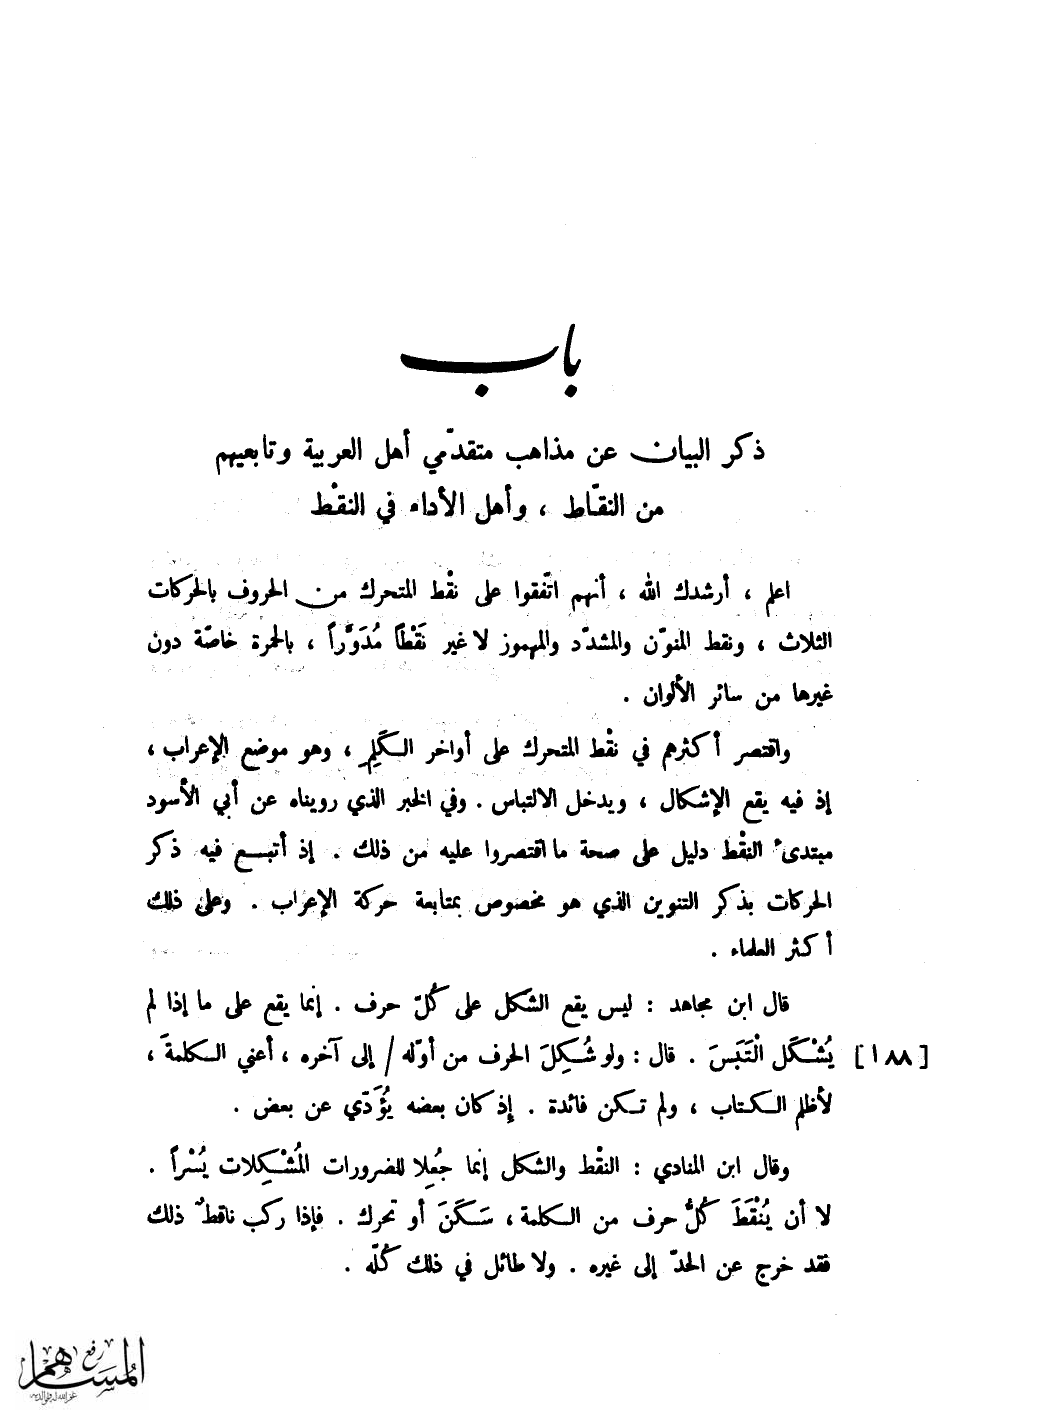 باب
ذكر البيان عن مذاهب متقدّمي أهل العربية وتابعيهم
من النقّاط ، وأهل الأداء في النقْط
اعلم ، أرشدك الله ، أنهم اتّفقوا على نقْط المتحرك من الحروف بالحركات
الثلاث ، ونقط المنوّن والمشدّد والمهموز لا غير نَقْطاً مُدَوَّراً ، بالحمرة خاصّة دون
غيرها من سائر الألوان .
واقتصر أكثرهم في نقْط المتحرك على أواخر الكَلِمِ ، وهو موضع الإعراب ،
إذ فيه يقع الإشكال ، ويدخل الالتباس . وفي الخبر الذي رويناه عن أبي الأسود
مبتدىء النقْط دليل على صحة ما اقتصروا عليه من ذلك . إذ أتبع فيه ذكر
الحركات بذكر التنوين الذي هو مخصوص بمتابعة حركة الإعراب . وعلى ذلك
أكثر العلماء .
قال ابن مجاهد : ليس يقع الشكل على كُلّ حرف . إنما يقع على ما إذا لم
يُشْكَل الْتَبَسَ . قال : ولو شُكِلَ الحرف من أوّله / إلى آخره ، أعني الكلمةَ ، [١٨٨]
لأظلم الكتاب ، ولم تكن فائدة . إذ كان بعضه يُؤَدّي عن بعض .
وقال ابن المنادي : النقْط والشكل إنما جُعِلا للضرورات المُشْكِلات يُسْراً .
لا أن يُنْقَطَ كُلُّ حرف من الكلمة ، سَكَنَ أو تحرك . فإذا ركب ناقطٌ ذلك
فقد خرج عن الحدّ إلى غيره . ولا طائل في ذلك كُلّه .
رفع
المساهم